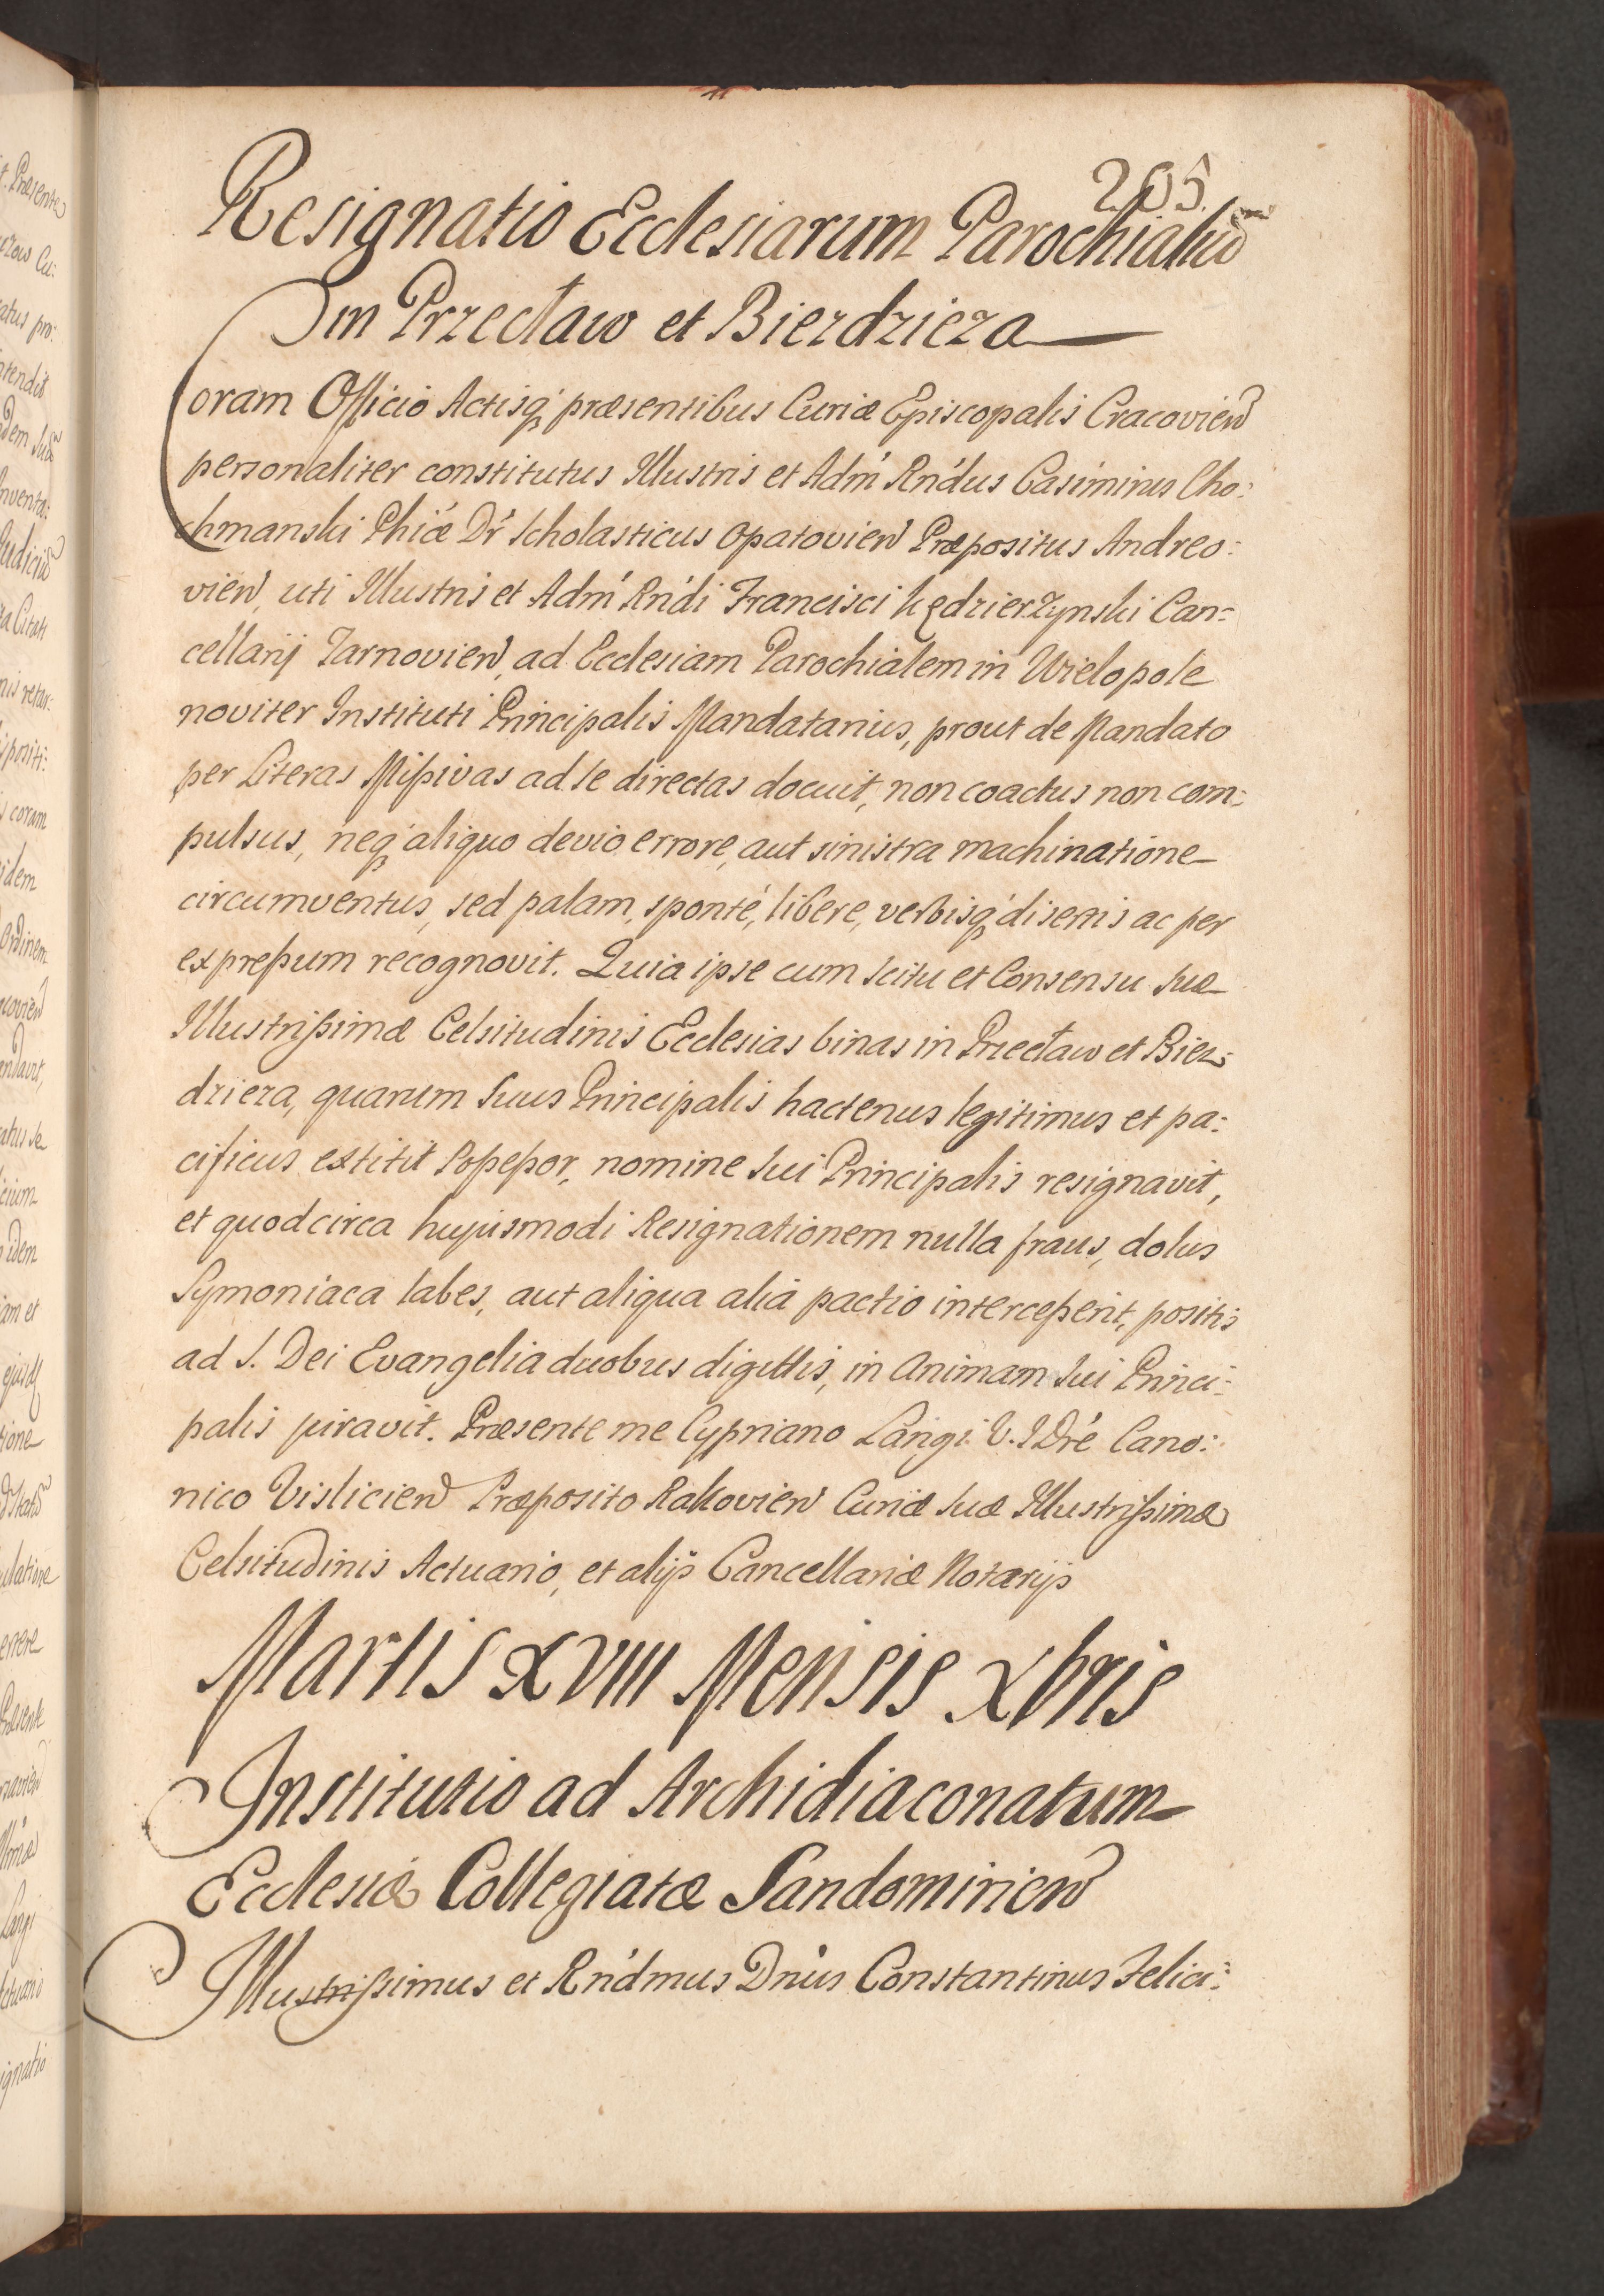 205.
Resignatio Ecclesiarum Parochialiũ
in Przecław et Bierdzieza
Coram Officio Actisq́ præsentibus Curiæ Episcopalis Cracovien̄
personaliter constitutus Illustris et Adm̃ Rńdus Casimirus Cho:
chmanski Phiæ Dr̃ Scholasticus Opatovien̄ Præpositus Andreo:
vien̄, uti Illustris et Adm̃ Rńdi Francisci Kędzierzynski Can:
cellarij Tarnovien̄, ad Ecclesiam Parochialem in Wielopole
noviter Instituti Principalis Mandatarius, prout de Mandato
per Literas Mißivas ad se directas docuit, non coactus non com:
pulsus, neq́ aliquo devio errore, aut sinistra machinatione
circumventus, sed palam, sponté, libere, verbisq́ disertis ac per
expreßum recognovit. Quia ipse cum scitu et Consensu Suæ
Illustrißimæ Celsitudinis Ecclesias binas in Przecław et Biez:
dzieza, quarum Suus Principalis hactenus legitimus et pa:
cificus extitit Poßeßor, nomine Sui Principalis resignavit,
et quod circa hujusmodi Resignationem nulla fraus, dolus
Symoniaca labes, aut aliqua alia pactio interceßerit, positis
ad S. Dei Evangelia duobus digittis, in Animam Sui Princi:
palis juravit. Præsente me Cypriano Langi V. I Dré Cano:
nico Vislicien̄ Præposito Rakovien̄ Curiæ Suæ Illustrißimæ
Celsitudinis Actuario, et alijs Cancellariæ Notarijs
Martis XVIII Mensis Xbris
Institutio ad Archidiaconatum
Ecclesiæ Collegiatæ Sandomirien̄
Illustrißimus et Rńdmus Dńus Constantinus Felici: